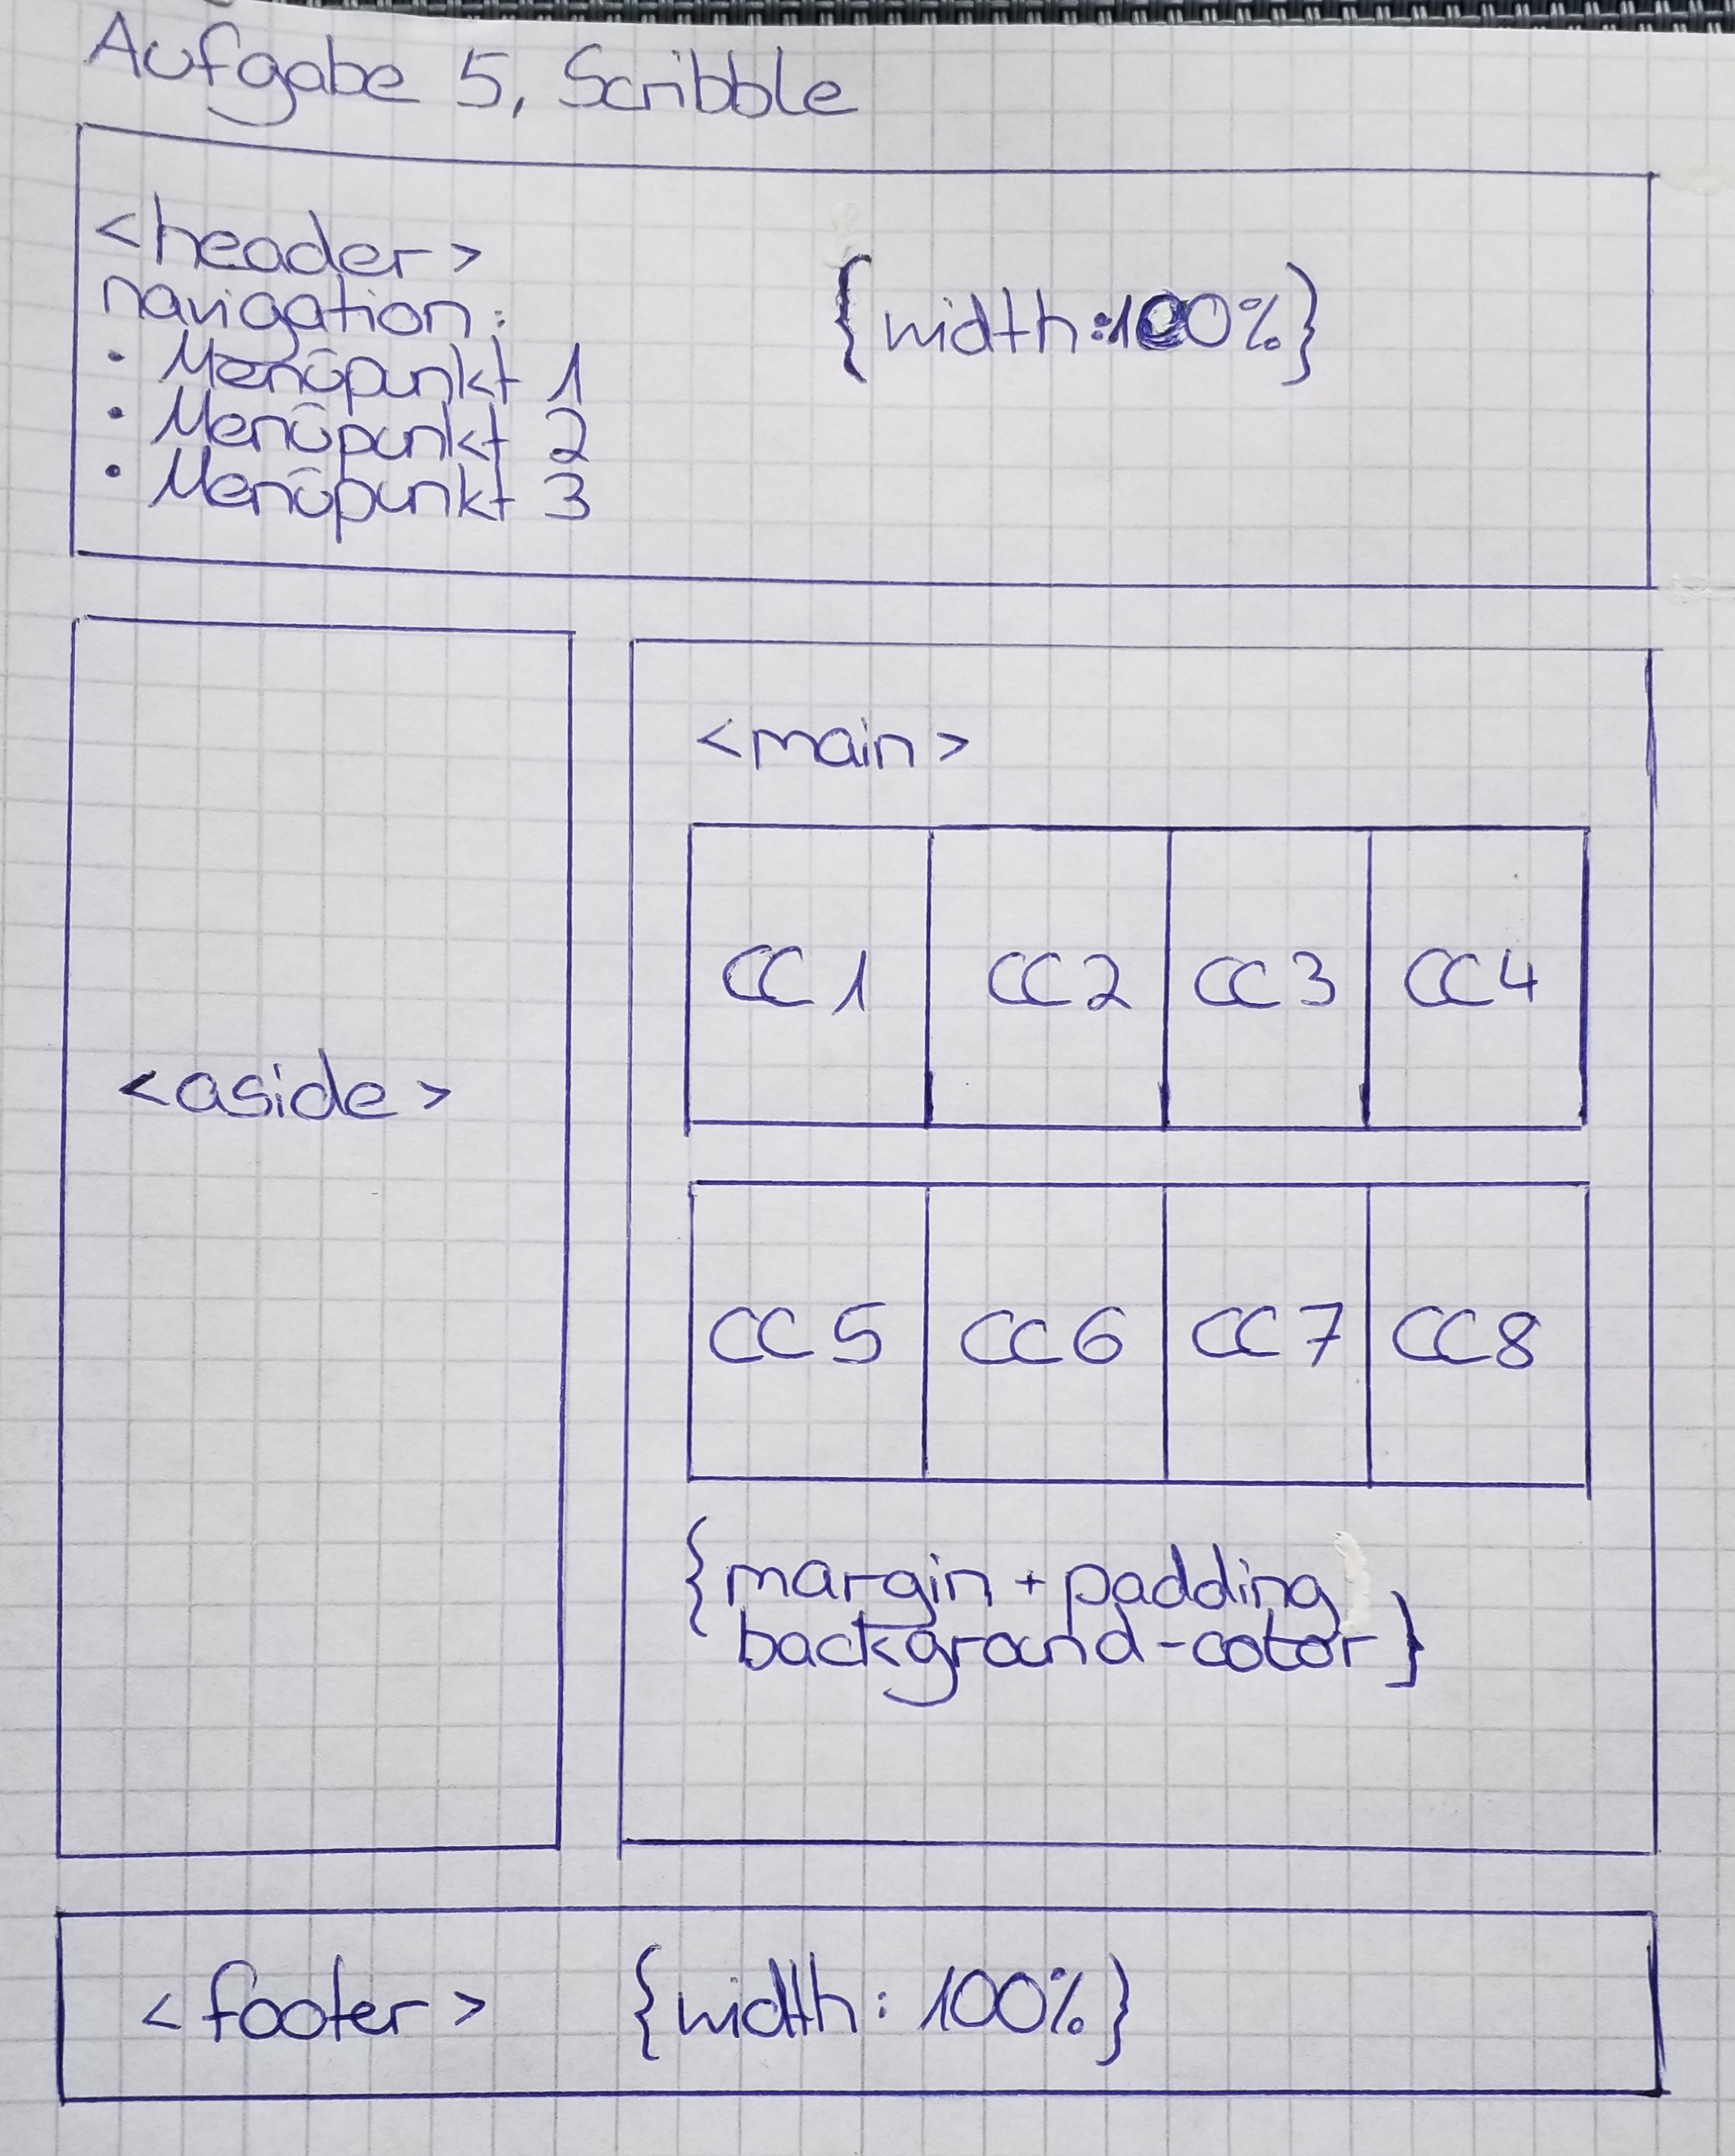 Aufgabe 5, Scribble
<header>
navigation:
• Menüpunkt 1
• Menüpunkt 2
• Menüpunkt 3
{width:100%}
<aside>
<main>
CC1 CC2 CC3 CC4
CC5 CC6 CC7 CC8
{margin + padding
background-color}
<footer> {width: 100%}